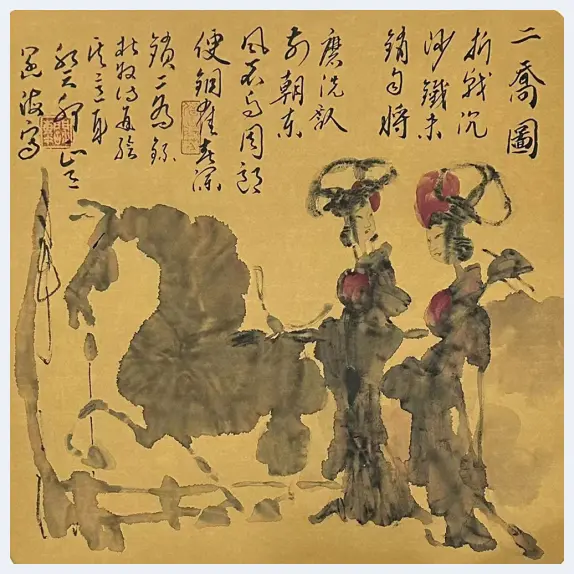 二喬圖
折戟沉
沙鐵未
銷自將
磨洗認
前朝東
風不与周郎
便銅雀春深
鎖二喬錄
杜牧詩並繪
其意
正之
海寫